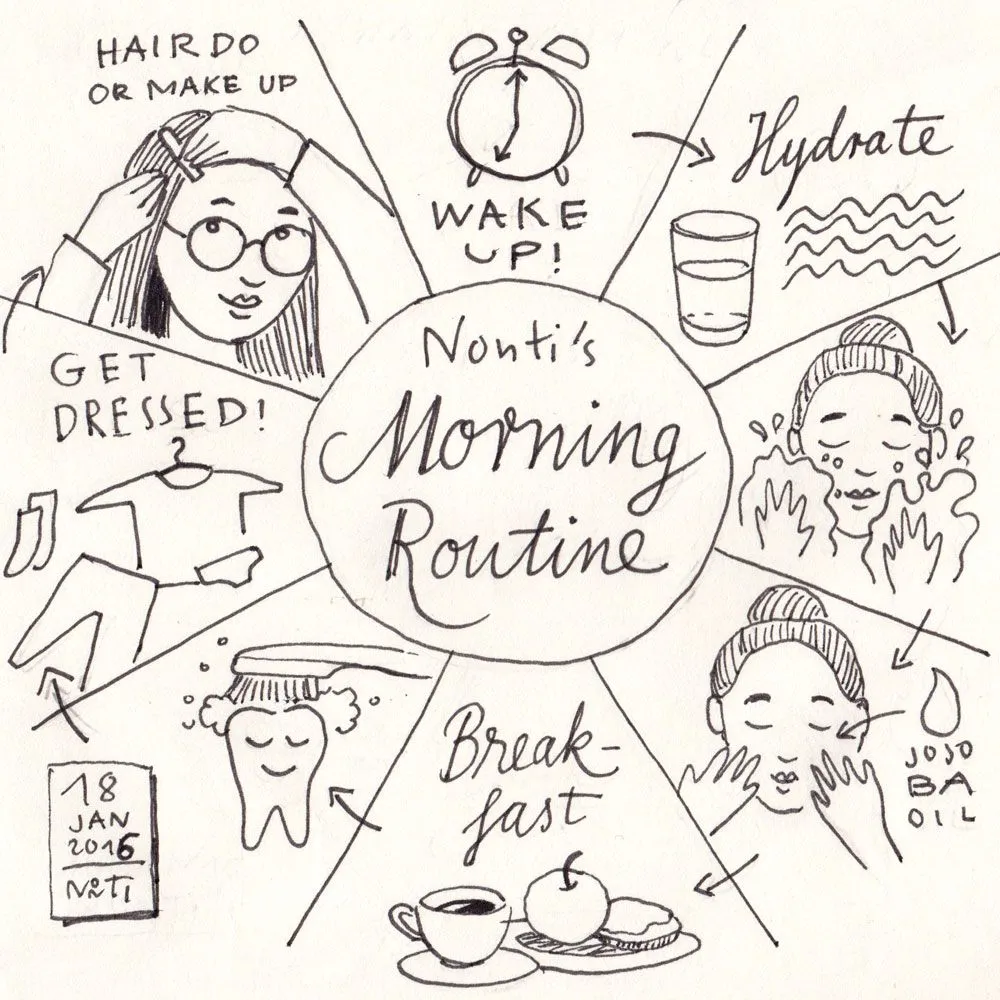 Nonti's
Morning
Routine
WAKE
UP!
Hydrate
JOJO
BA
OIL
Break-
fast
GET
DRESSED!
HAIRDO
OR MAKE UP
18
JAN
2016